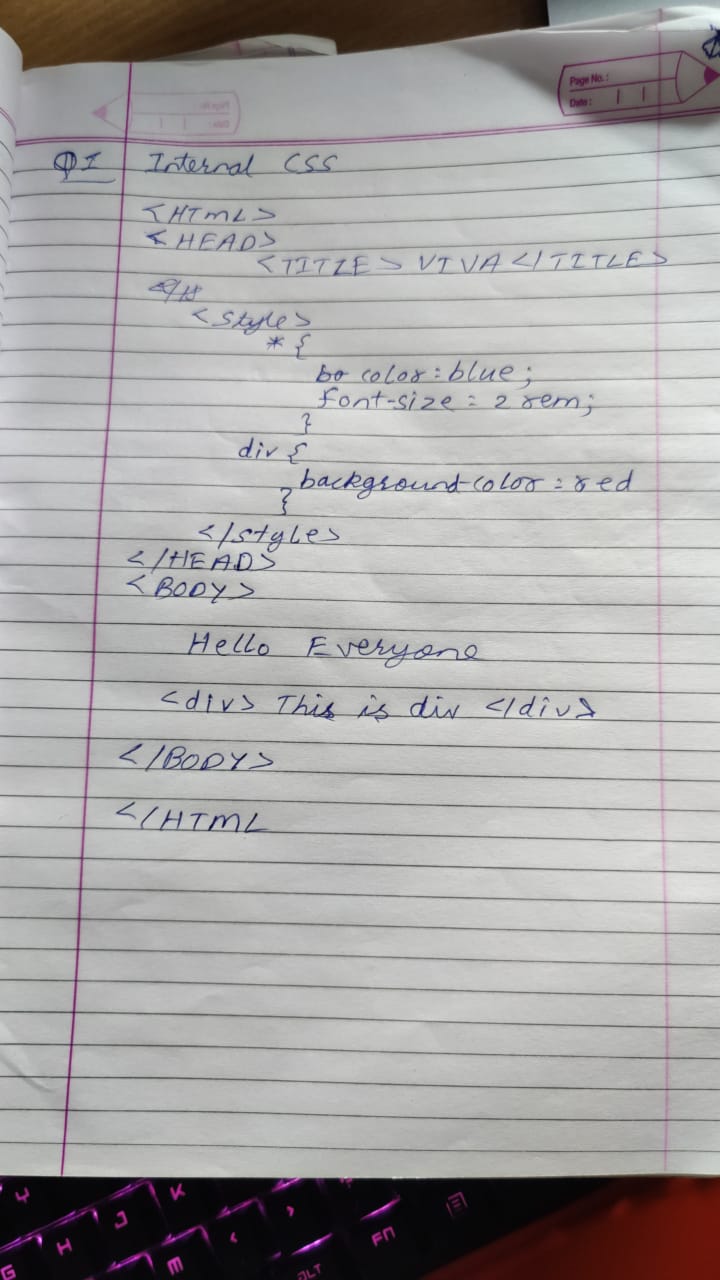 Page No.:
Date:
Q1 Internal CSS
<HTML>
<HEAD>
<TITLE> VIVA </TITLE>
<style>
* {
color: blue;
font-size: 2 rem;
}
div {
background-color: red
}
</style>
</HEAD>
<BODY>
Hello Everyone
<div> This is div </div>
</BODY>
</HTML
Y
J
K
G
H
M
<
>
ALT
Fn